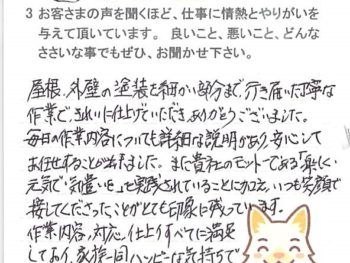 3 お客さまの声を聞くほど、仕事に情熱とやりがいを
与えて頂いています。 良いこと、悪いこと、どんな
ささいな事でもぜひ、お聞かせ下さい。
屋根、外壁の塗装を細かい部分まで、行き届いた丁寧な
作業で、きれいに仕上げていただき、ありがとうございました。
毎日の作業内容についても詳細な説明があり、安心して
お任せすることが出来ました。また貴社のモットーである「明るく
元気で気遣いを」も実践されていることに加え、いつも笑顔で
接してくださったことがとても印象に残っています。
作業内容、対応、仕上りすべてに満足
しており、家族一同ハッピーな気持ちで